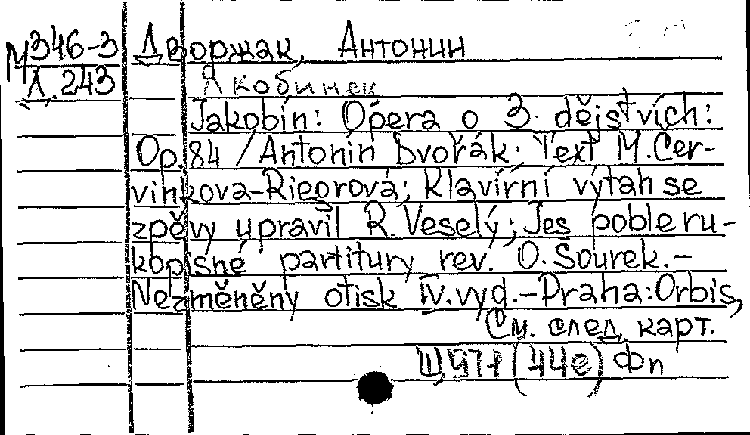 М346-3 Дворжак, Антонин
Д.243 Якобинец
Jakobín: Opera o 3. dějstvích:
Op.84 / Antonín Dvořák; Text M.Čer-
vinkova-Riegrová; Klavírní výtah se
zpěvy upravil R.Veselý; Jes poble ru-
kopisné partitury rev. O.Šourek.–
Nezměněný otisk IV.vyd.–Praha:Orbis,
См. след. карт.
(44е) Фп